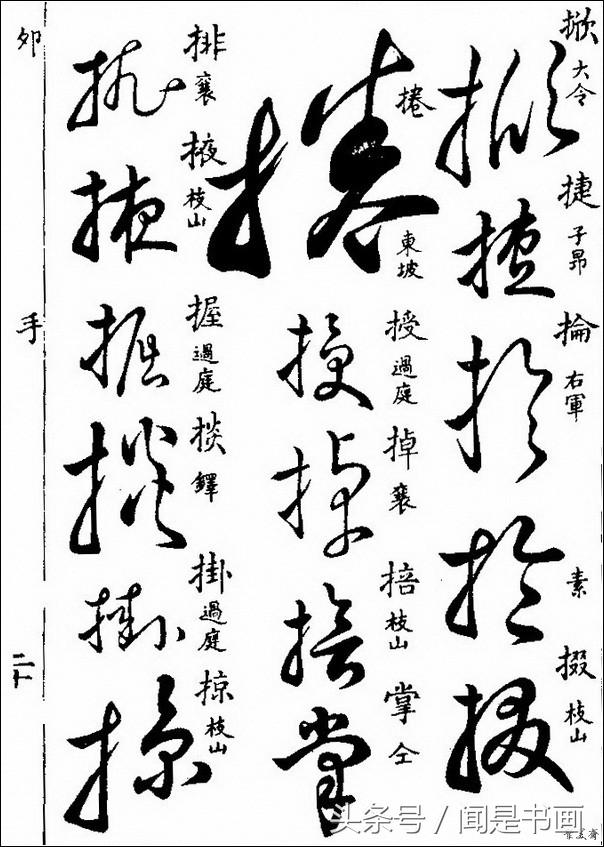 掀 大令
捷 子昂
掄 右軍
素
掇 枝山
捲 東坡
授 過庭
掉 襄
掊 枝山
掌 仝
排 襄
掖 枝山
握 過庭
掞 鐸
掛 過庭
掠 枝山
卯
手
二十
头条号 / 闻是书画